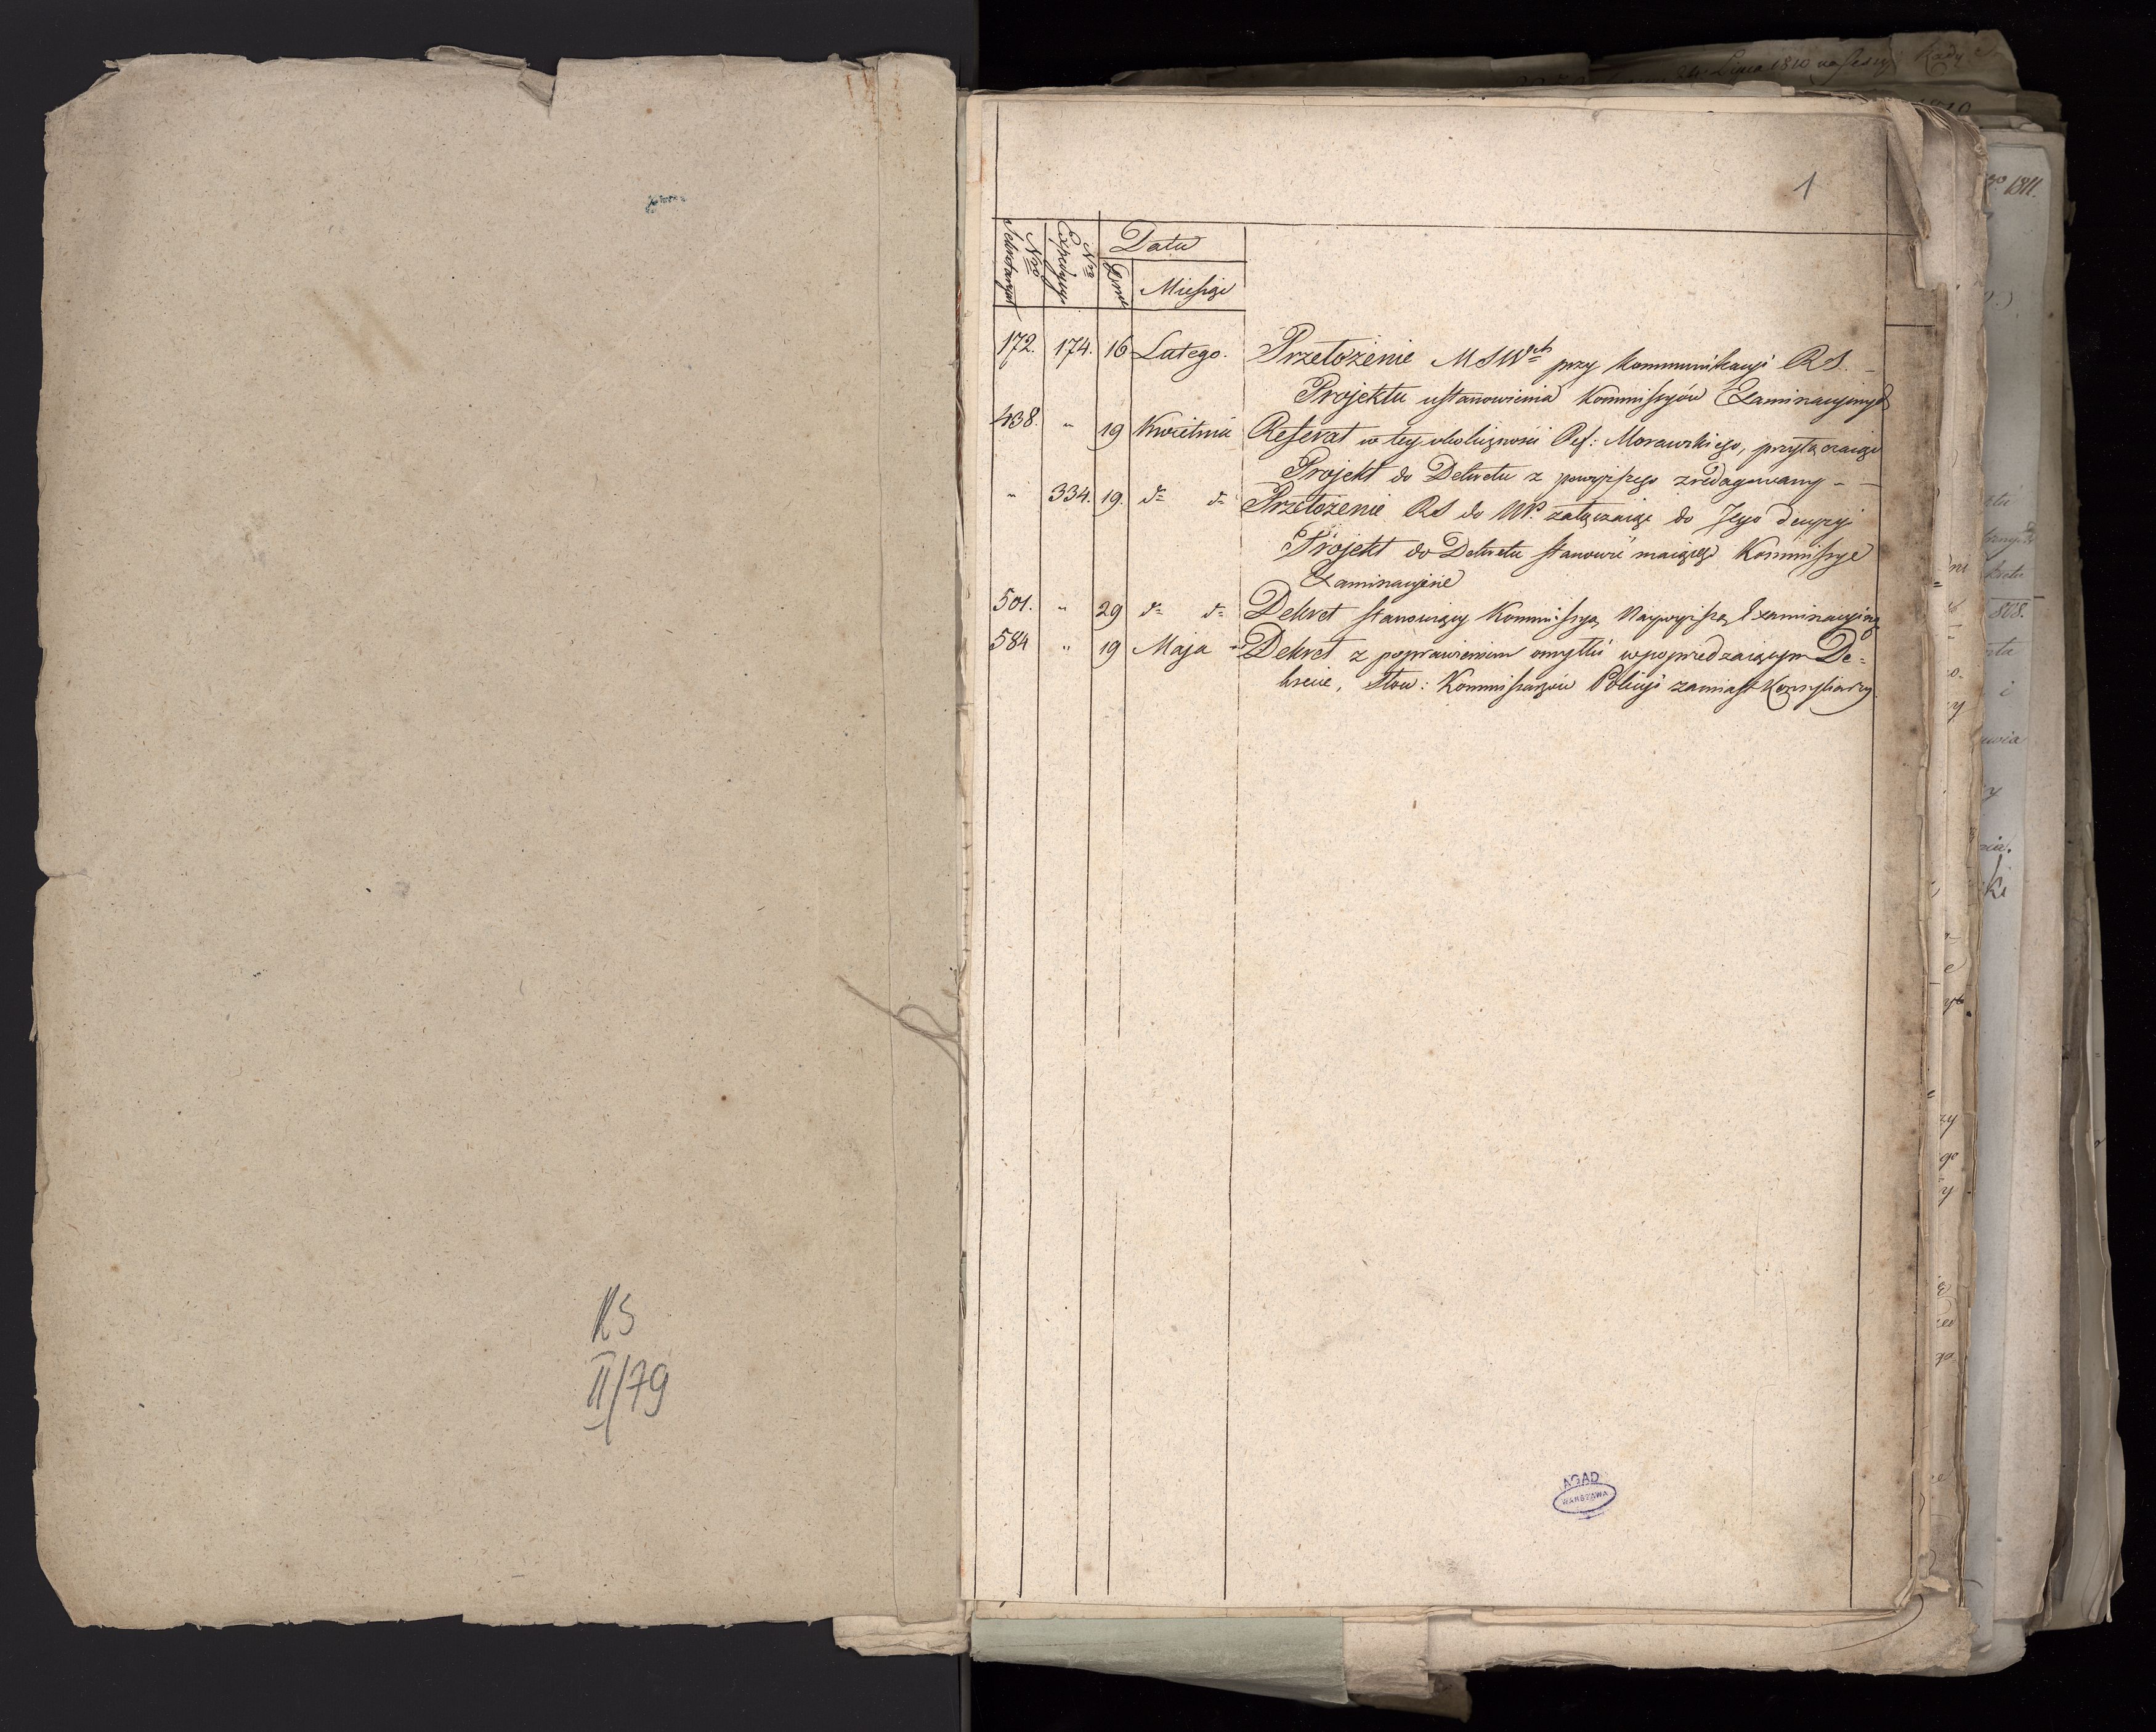 RS
II/79
1
Nro Sekretaryat
Nro Expedycyi
Data
Dzień
Miesiąc
172. 174. 16 Lutego. Przełożenie MSWch przy kommunikacyi RS. –
Projektu ustanowienia Kommissyów Examinacyjnych
438. " 19 Kwietnia Referat w tey okoliczności Ref: Morawskiego, przyłączaiąc
Projekt do Dekretu z powyższego zredagowany – –
" 334. 19. do do Przełożenie RS do NP. załączaiąc do Jego decyzyi
Projekt do Dekretu stanowić maiącego Kommissye
Examinacyjne
501. " 29 do do Dekret stanowiący Kommissyą Naywyższą Examinacyjną
584 " 19 Maja Dekret z poprawieniem omyłki w poprzedzaiącym De=
krecie, słow: Kommissarzów Policyi zamiast Konsyliarzy.
AGAD
WARSZAWA
1811.
808.